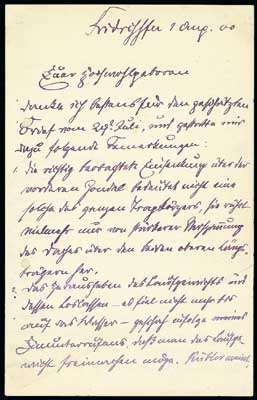 Friedrichshafen 1 Aug. 00
Euer Hochwohlgeboren
danke ich bestens für den geschätzten
Brief vom 29t Juli, und gestatte mir
dazu folgende Bemerkungen:
1. die richtig beobachtete Einsenkung über der
vorderen Gondel bedeutet nicht eine
solche des ganzen Tragkörpers, sie rührt
vielmehr nur von stärkerer
des Daches über den beiden oberen Längs-
trägern her.
2. das des Laufgewichts und
dessen Loslassen – es fiel nicht
auf das Wasser – geschah infolge meines
Hinunterrufens, daß man das Laufge-
wicht freimachen möge.